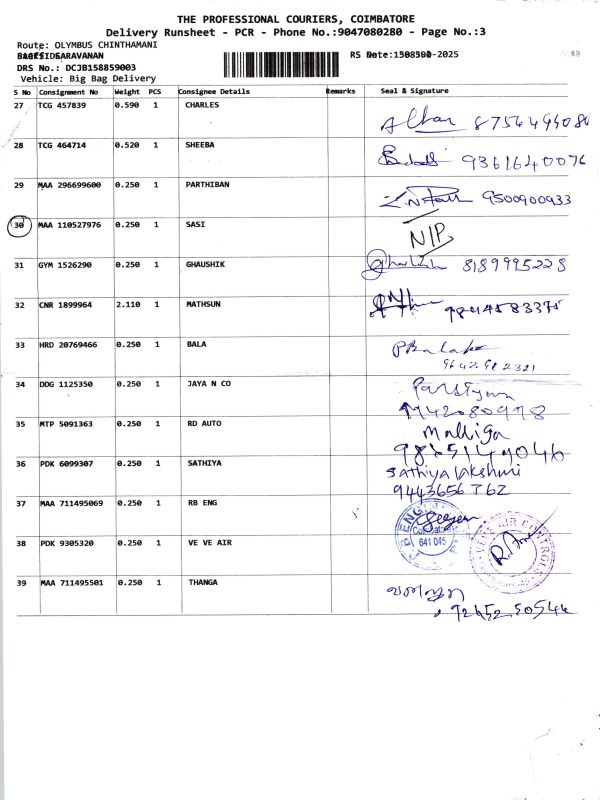 THE PROFESSIONAL COURIERS, COIMBATORE
Delivery Runsheet - PCR - Phone No.:9047080280 - Page No.:3
Route: OLYMBUS CHINTHAMANI
SARAVANAN
DRS No.: DCJB158859003
Vehicle: Big Bag Delivery
S No Consignment No Weight PCS Consignee Details Remarks Seal & Signature
27 TCG 457839 0.590 1 CHARLES
28 TCG 464714 0.520 1 SHEEBA 9361640076
29 MAA 296699600 0.250 1 PARTHIBAN 9500900933
30 MAA 110527976 0.250 1 SASI N/P
31 GYM 1526290 0.250 1 GHAUSHIK 8189995228
32 CNR 1899964 2.110 1 MATHSUN
33 HRD 20769466 0.250 1 BALA
34 DDG 1125350 0.250 1 JAYA N CO
35 MTP 5091363 0.250 1 RD AUTO Malliga
36 PDK 6099307 0.250 1 SATHIYA Sathiya lakshmi
9443656762
37 MAA 711495069 0.250 1 RB ENG
641 045
38 PDK 9305320 0.250 1 VE VE AIR
39 MAA 711495501 0.250 1 THANGA